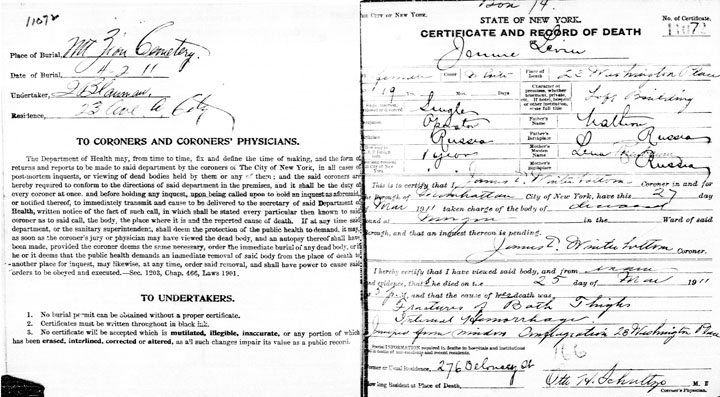 11072
Place of Burial, Mt Zion Cemetery.
Date of Burial, 4/2 11
Undertaker,
Residence, 23 Ave A. City
TO CORONERS AND CORONERS' PHYSICIANS.
The Department of Health may, from time to time, fix and define the time of making, and the form of
returns and reports to be made to said department by the coroners in The City of New York, in all cases of
post-mortem inquests, or viewing of dead bodies held by them or any of them; and the said coroners are
hereby required to conform to the directions of said department in the premises, and it shall be the duty of
every coroner at once, and before holding any inquest, upon being called upon to hold an inquest as aforesaid,
or notified thereof, to immediately transmit and cause to be delivered to the secretary of said Department of
Health, written notice of the fact of such call, in which shall be stated every particular then known to said
coroner as to said call, the body, the place where it is and the reported cause of death. If at any time said
department, or the sanitary superintendent, shall deem the protection of the public health to demand, it may,
as soon as the coroner's jury or physician may have viewed the dead body, and an autopsy thereof shall have
been made, provided the coroner deems the same necessary, order the immediate burial of any dead body, or if
he or it deems that the public health demands an immediate removal of said body from the place of death to
another place for inquest, may likewise, at any time, order said removal, and shall have power to cause said
orders to be obeyed and executed.—Sec. 1203, Chap. 466, Laws 1901.
TO UNDERTAKERS.
1. No burial permit can be obtained without a proper certificate.
2. Certificates must be written throughout in black ink.
3. No certificate will be accepted which is mutilated, illegible, inaccurate, or any portion of which
has been erased, interlined, corrected or altered, as all such changes impair its value as a public record.
THE CITY OF NEW YORK.
STATE OF NEW YORK.
No. of Certificate,
11072
CERTIFICATE AND RECORD OF DEATH
OF
Jennie Levin
Color White
Place of Death 23 Washington Place
19 Yrs. Mos. Days
Character of premises, whether tenement, private, etc. If hotel, hospital or other institution, state full title
Loft Building
Single
Operator
Father's Name
Russia
Father's Birthplace Russia
1 year
Mother's Maiden Name Lena
Mother's Birthplace Russia
This is to certify that I James E. Winterbottom Coroner in and for
Borough of Manhattan City of New York, have this 27 day
of Mar 1911 taken charge of the body of deceased
found at Morgue in the Ward of said
Borough, and that an inquest thereon is pending.
James E. Winterbottom Coroner.
I hereby certify that I have viewed said body, and from
and evidence, that he died on the 25 day of Mar 1911
P. M., and that the cause of death was
Fractures of Both Thighs
Internal Hemorrhage
Jumped from window Conflagration 23 Washington Place
Special INFORMATION required in deaths in hospitals and institutions
and in deaths of non-residents and recent residents.
166
Former or Usual Residence, 276 Delancey St
How long Resident at Place of Death,
Otto H. Schultze M. D.
Coroner's Physician.